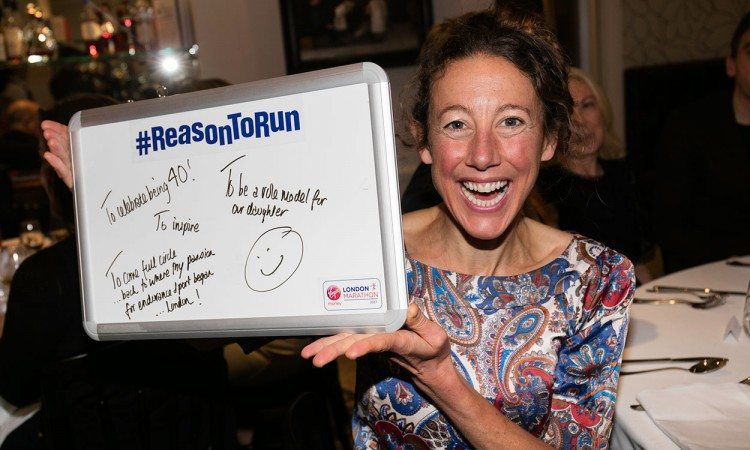 #ReasonToRun
To celebrate being 40!
To inspire
To come full circle
back to where my passion
for endurance sport began
... London!
To be a role model for
our daughter
Virgin
money
LONDON
MARATHON
2017